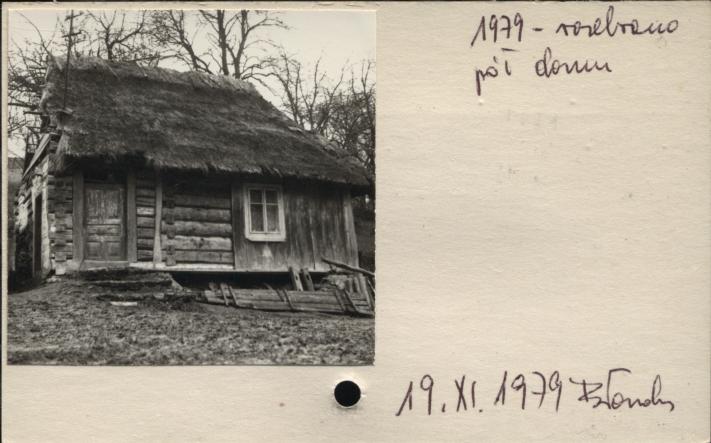 1979 - rozebrano
pół domu
19. XI. 1979